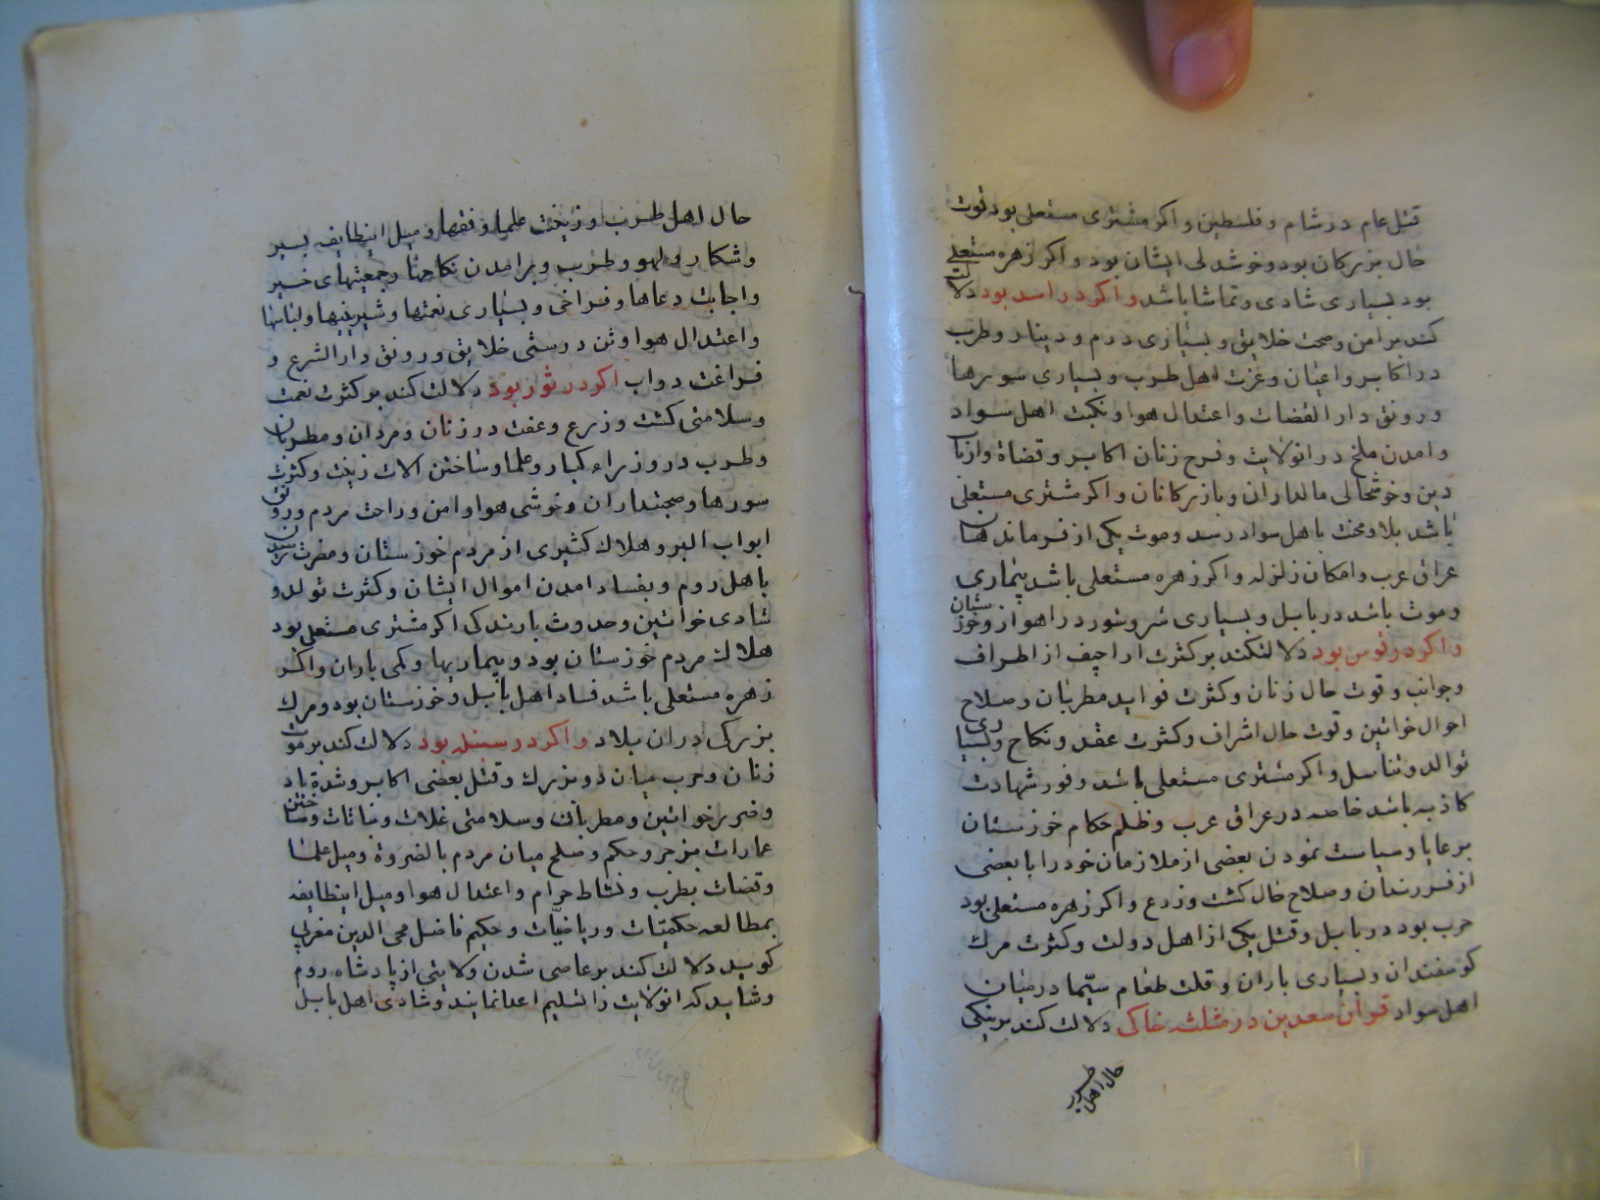 قتل عام در شام و فلسطین و اکر مشتری مستعلی بود قوت
حال بزرکان بود و خوشدلی ایشان بود و اکر زهره مستعلی
بود بسیاری شادی و تماشا باشد و اکر در اسد بود دلالت
کند بر امن و صحت خلایق و بسیاری درم و دینار و طرب
در اکابر و اعیان و عزت اهل طرب و بسیاری سورها
و رونق دار القضات و اعتدال هوا و نکبت اهل سواد
و امدن ملخ در انولایت و فرح زنان اکابر و قضاة و ارباب
دین و خوشحالی مالداران و بازرکانان و اکر مشتری مستعلی
باشد بلا و محنت باهل سواد رسد و موت یکی از فرماندهان
عراق عرب و امکان زلزله و اکر زهره مستعلی باشد بیماری
و موت باشد در بابل و بسیاری شر و شور در اهواز و خوزستان
و اکر در قوس بود دلالتکند بر کثرت اراجیف از اطراف
و جوانب و قوت حال زنان و کثرت فواید مطربان و صلاح
احوال خواتین و قوت حال اشراف و کثرت عقد و نکاح و بسیاری
توالد و تناسل و اکر مشتری مستعلی باشد وفور شهادت
کاذبه باشد خاصه در عراق عرب و ظلم حکام خوزستان
بر عایا و سیاست نمودن بعضی از ملازمان خود را با بعضی
از فرزندان و صلاح حال کشت و زرع و اکر زهره مستعلی بود
حرب بود در بابل و قتل یکی از اهل دولت و کثرت مرک
کوسفندان و بسیاری باران و قلت طعام سیّما در میان
اهل سواد قران سعدین در مثلثه خاکی دلالت کند بر نیکی
حال اهل طرب
حال اهل طرب و زینت علما و فقها و میل اینطایفه بسیر
و شکار و لهو و طرب و برامدن نکاحها و جمعیتهای خیر
و اجابت دعاها و فراخی و بسیاری نعمتها و شیرینیها و لباسها
و اعتدال هوا و تن درستی خلایق و رونق دار الشرع و
فراغت دواب اکر در ثور بود دلالت کند بر کثرت نعمت
و سلامتی کشت و زرع و عفت در زنان و مردان و مطربان
و طرب در وزراء کبار و علما و ساختن الات زینت و کثرت
سورها و خوشی هوا و امن و راحت مردم و رونق
ابواب البر و هلاک کثیری از مردم خوزستان و مضرت رسیدن
باهل روم و بفساد امدن اموال ایشان و کثرت تولد و
شادی خواتین و حدوث بارندکی اکر مشتری مستعلی بود
هلاک مردم خوزستان بود و بیماریها و کمی باران و اکر
زهره مستعلی باشد فساد اهل بابل و خوزستان بود و مرک
بزرکی در ان بلاد و اکر در سنبله بود دلالت کند بر موت
زنان و حرب میان دو بزرک و قتل بعضی اکابر و شدة باد
و ضرر خواتین و مطربان و سلامتی غلات و نباتات و ساختن
عمارات و حکم و صلح میان مردم بالضروة و میل علما
و قضات بطرب و نشاط حرام و اعتدال هوا و میل اینطایفه
بمطالعه حکمیّات و ریاضیّات و حکیم فاضل محی الدین مغربی
کوید دلالت کند بر عاصی شدن ولایتی از پادشاه روم
و شاید که انولایت را تسلیم اعدا نمایند و شادی اهل بابل